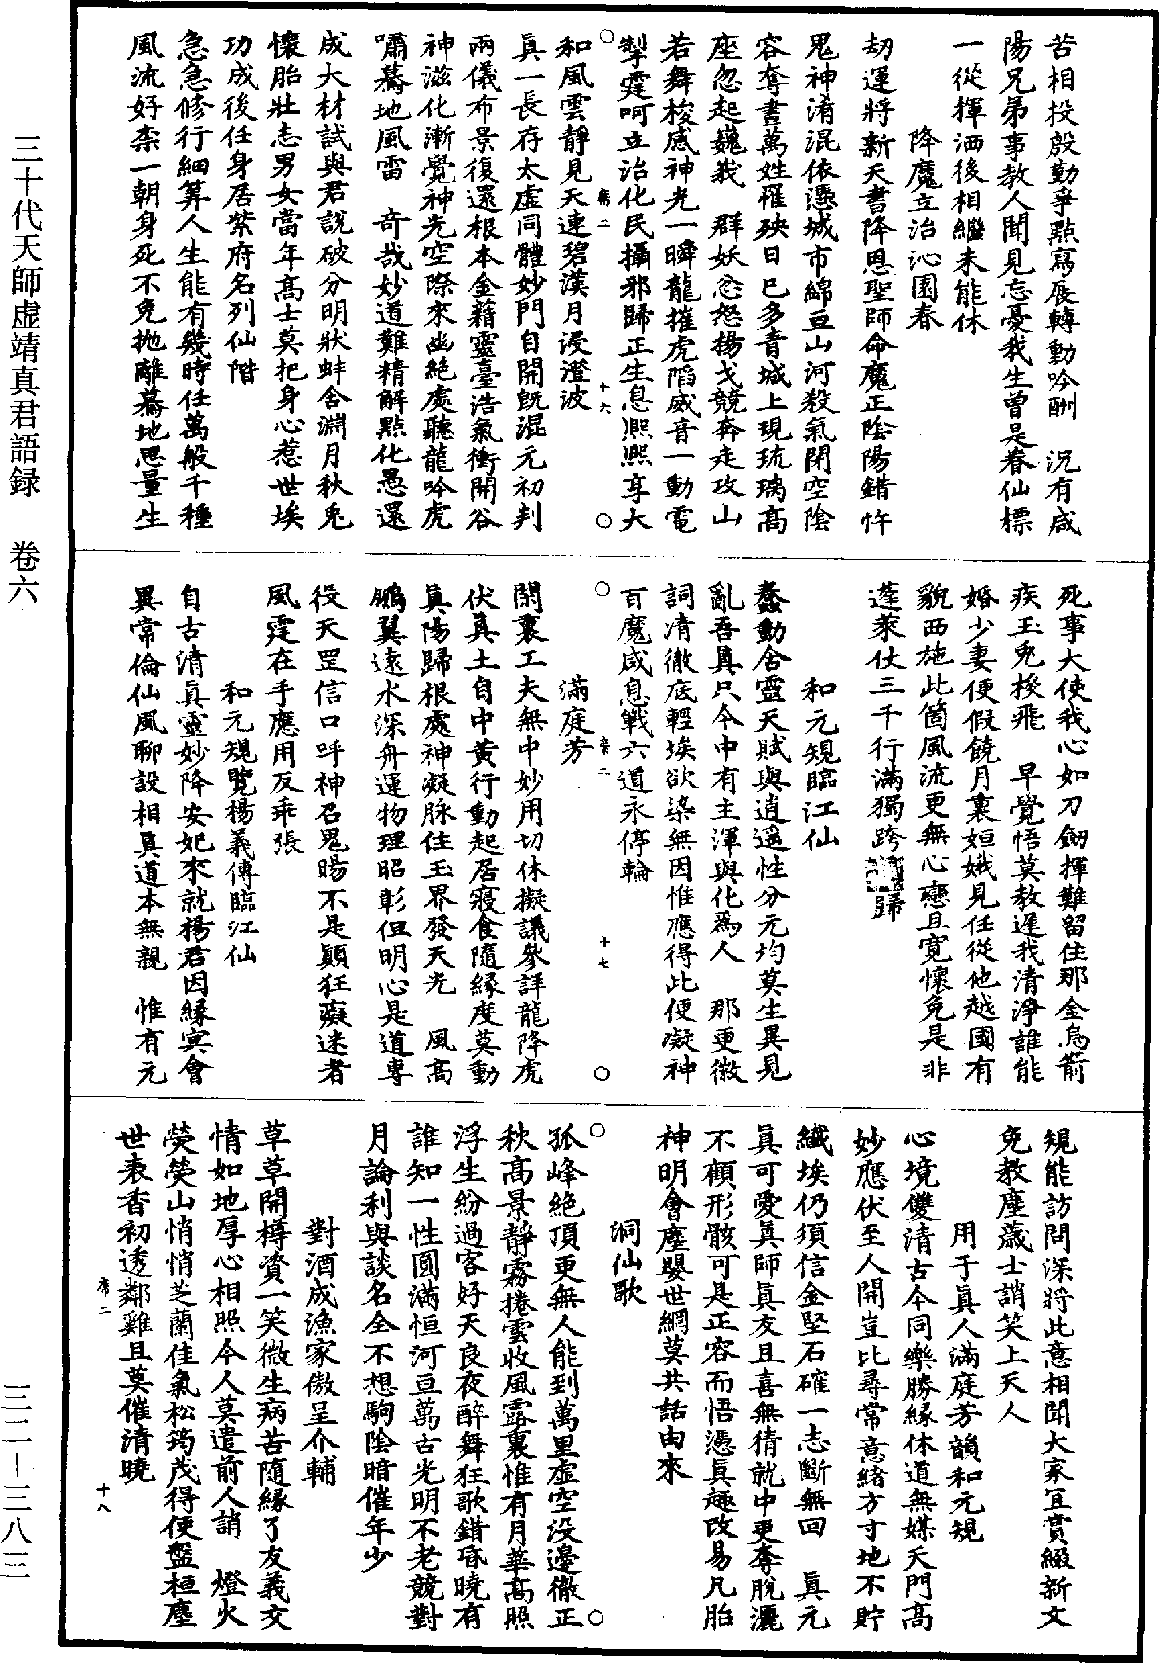 苦相投殷勤爭點寫展轉動吟酬　況有咸
陽兄弟事教人聞見忘憂我生曾是眷仙標
一從揮洒後相繼未能休
降魔立治沁園春
劫運將新天書降恩聖師命魔正陰陽錯忤
鬼神淆混依憑城市綿亘山河殺氣閉空陰
容奪晝萬姓罹殃日已多青城上現琉璃高
座忽起巍峩　群妖忿怒揚戈競奔走攻山
若舞梭感神光一瞬龍摧虎陷威音一動電
掣霆呵立治化民攝邪歸正生息熙熙享大
席二　十六
和風雲靜見天連碧漢月浸澄波
真一長存太虛同體妙門自開旣混元初判
兩儀布景復還根本全藉靈臺浩氣衝開谷
神滋化漸覺神光空際來幽絕處聽龍吟虎
嘯驀地風雷　奇哉妙道難精解點化愚還
成大材試與君說破分明狀蚌含淵月秋兔
懷胎壯志男女當年高士莫把身心惹世埃
功成後任身居紫府名列仙階
急急修行細算人生能有幾時任萬般千種
風流好柰一朝身死不免抛離驀地思量生
死事大使我心如刀劒揮難留住那金烏箭
疾玉兔梭飛　早覺悟莫教遲我清淨誰能
婚少妻便假饒月裏姮娥見任從他越國有
貌西施此箇風流更無心戀且寬懷免是非
蓬萊仗三千行滿獨跨歸
和元規臨江仙
蠢動含靈天賦與逍遥性分元均莫生異見
亂吾眞只今中有主渾與化爲人　那更微
詞清徹底輕埃欲染無因惟應得此便凝神
百魔咸息戰六道永停輪
席二　十七
滿庭芳
閑裏工夫無中妙用切休擬議參詳龍降虎
伏真土自中黄行動起居寢食隨緣度莫動
真陽歸根處神凝脉住玉界發天光　風高
鵬翼遠水深舟運物理昭彰但明心是道專
役天罡信口呼神召鬼暘不是顛狂癡迷者
風霆在手應用反乖張
和元規覽楊羲傳臨江仙
自古清真靈妙降安妃來就楊君因緣冥會
異常倫仙風聊設相真道本無親　惟有元
規能訪問深將此意相聞大家宜賞綴新文
免教塵薉士誚笑上天人
用于真人滿庭芳韻和元規
心境雙清古今同樂勝緣休道無媒天門高
妙應伏至人開豈比尋常意緒方寸地不貯
纖埃仍須信金堅石確一志斷無回　眞元
真可愛眞師眞友且喜無猜就中更奪脫灑
不顧形骸可是正容而悟憑真趣改易凡胎
神明會塵嬰世網莫共話由來
洞仙歌
孤峰絕頂更無人能到萬里虛空没邊徼正
秋高景靜霧捲雲收風露裏惟有月華高照
浮生紛過客好天良夜醉舞狂歌錯昏曉有
誰知一性圓滿恒河亘萬古光明不老競對
月論利與談名全不想駒陰暗催年少
對酒成漁家傲呈介輔
草草開樽資一笑微生病苦隨緣了友義交
情如地厚心相照今人莫遣前人誚　燈火
熒熒山悄悄芝蘭佳氣松筠茂得便盤桓塵
世表香初透鄰雞且莫催清曉
席二　十八
三十代天師虚靖真君語録　卷六
三二－三八三